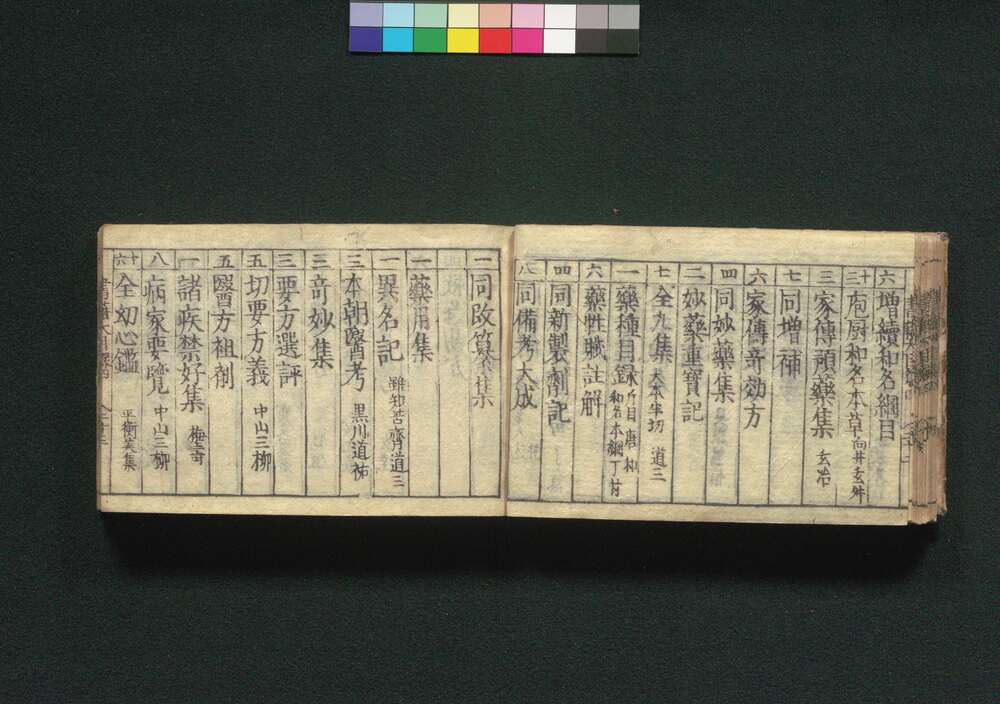 六 増續和名綱目
十三 庖厨和名本草 向井玄舛
三 家傳預藥集 玄冶
七 同増補
六 家傳竒効方
四 同妙藥集
二 妙藥重寶記
七 全九集 大本半切 道三
一 藥種目録 和名本綱
六 藥性賦註解
四 同新製劑記
八 同備考大成
一 同改算
一 藥用集
一 異名記 雖知苦齋道三
三 本朝醫考 黒川道祐
三 竒妙集
三 要方選評
五 切要方義 中山三柳
五 醫方祖劑
一 諸疾禁好集 梅寿
八 病家要覽 中山三柳
十六 全幼心鑑